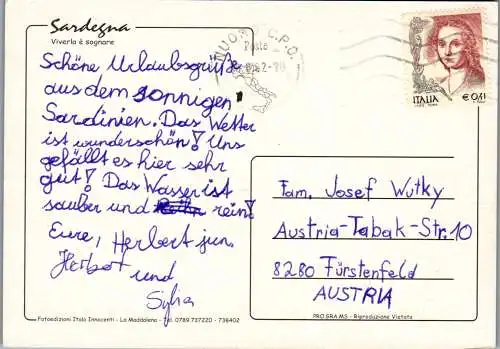 Sardegna
Viverla è sognare
NUORO C.P.O.
Poste
Schöne Urlaubsgrüße
aus dem sonnigen
Sardinien. Das Wetter
ist wunderschön! Uns
gefällt es hier sehr
gut! Das Wasser ist
sauber und rein!
Eure, Herbert jun.
Herbert und
Sylvia
ITALIA
€ 0,41
Fam. Josef Wutky
Austria-Tabak-Str. 10
8280 Fürstenfeld
AUSTRIA
Fotoedizioni Italo Innocenti - La Maddalena - Tel. 0789.737220 - 738402
PRO.GRA.MS - Riproduzione Vietata